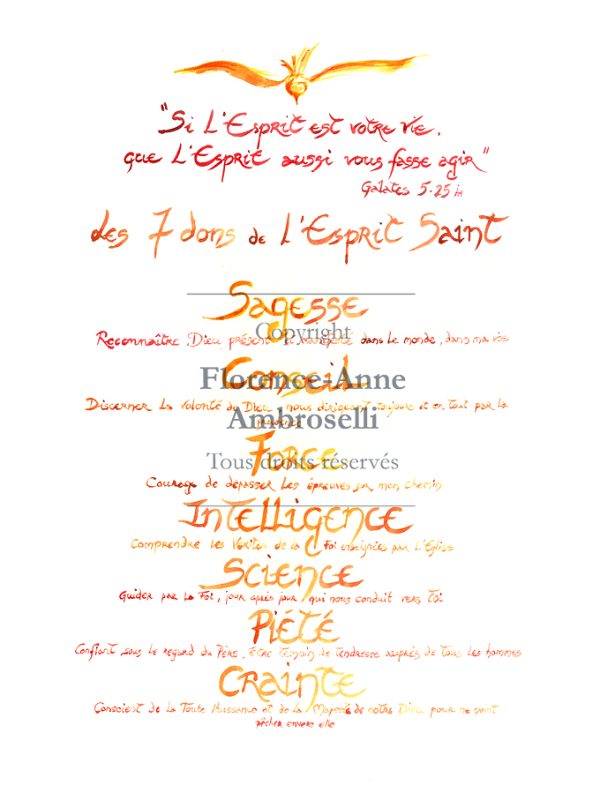 "Si L'Esprit est votre vie,
que L'Esprit aussi vous fasse agir"
Galates 5.25
des 7 dons de L'Esprit Saint
Sagesse
Copyright
Reconnaître Dieu présent et manifesté dans le monde, dans ma vie
Conseil
Florence-Anne
Discerner la volonté de Dieu, nous dirigeant toujours et en tout par la
Ambroselli
Force
Tous droits réservés
Courage de dépasser les épreuves sur mon chemin
Intelligence
Comprendre les Vérités de la Foi enseignées par l'Église
Science
Guider par la Foi, jour après jour qui nous conduit vers toi
Piété
Confiant sous le regard du Père, être témoin de tendresse auprès de tous les hommes
Crainte
Conscient de la Toute Puissance et de la Majesté de notre Dieu pour ne point
pêcher envers elle